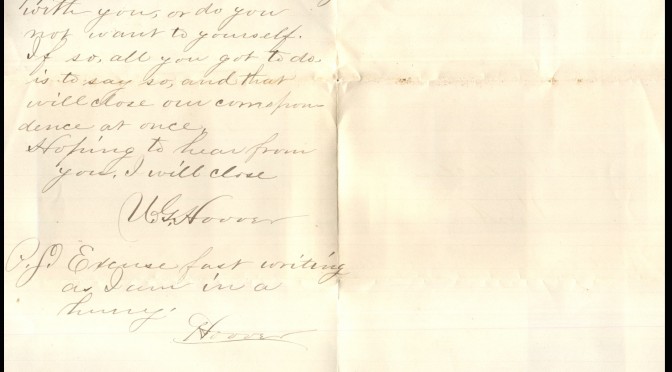 with you, or do you
not want to yourself.
If so, all you got to do
is to say so, and that
will close our correspon
dence at once.
Hoping to hear from
you, I will close
U.G. Hoover
P.S. Excuse fast writing
as I am in a
hurry.
Hoover